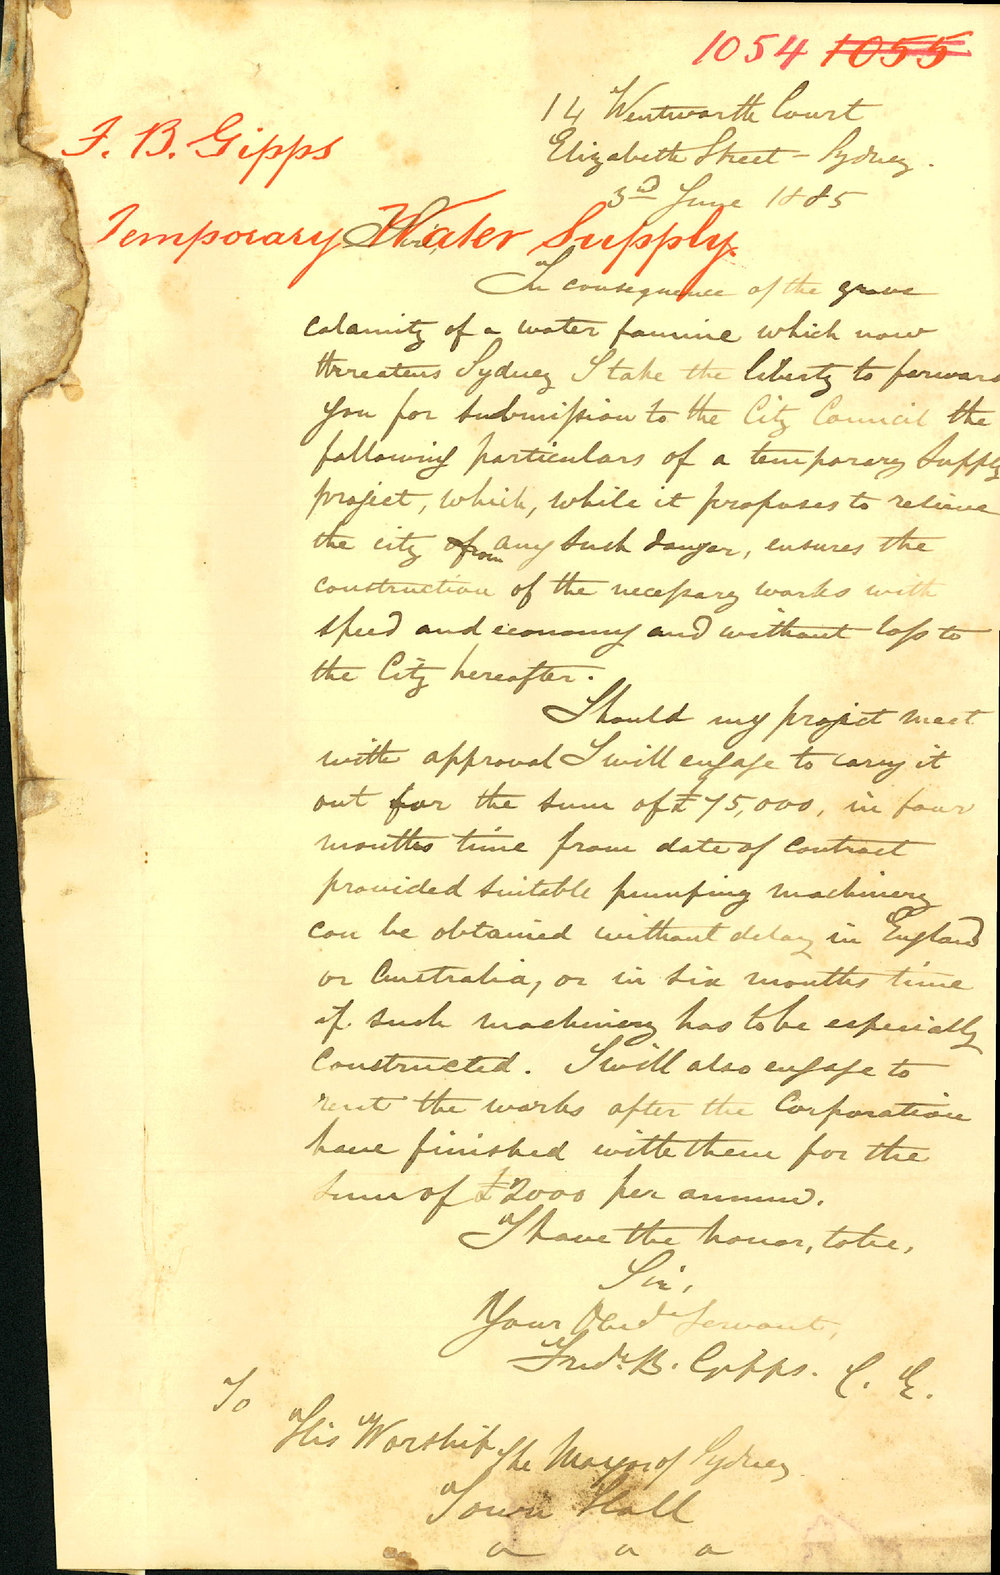 1054 1055
14 Wentworth Court
F. B. Gipps
Elizabeth Street - Sydney.
3rd June 1885
Temporary Water Supply.
Sir,
In consequence of the grave
calamity of a water famine which now
threatens Sydney I take the liberty to forward
you for submission to the City Council the
following particulars of a temporary Supply
project, which, while it proposes to relieve
the city from any such danger, ensures the
construction of the necessary works with
speed and economy and without loss to
the City hereafter.
Should my project meet
with approval I will engage to carry it
out for the sum of £75,000, in four
months time from date of contract
provided suitable pumping machinery
can be obtained without delay in England
or Australia, or in six months time
if such machinery has to be especially
constructed. I will also engage to
rent the works after the Corporation
have finished with them for the
sum of £2000 per annum.
I have the honor, to be,
Sir,
Your Obedt Servant,
Fredk. B. Gipps. C. E.
To
His Worship the Mayor of Sydney
Town Hall